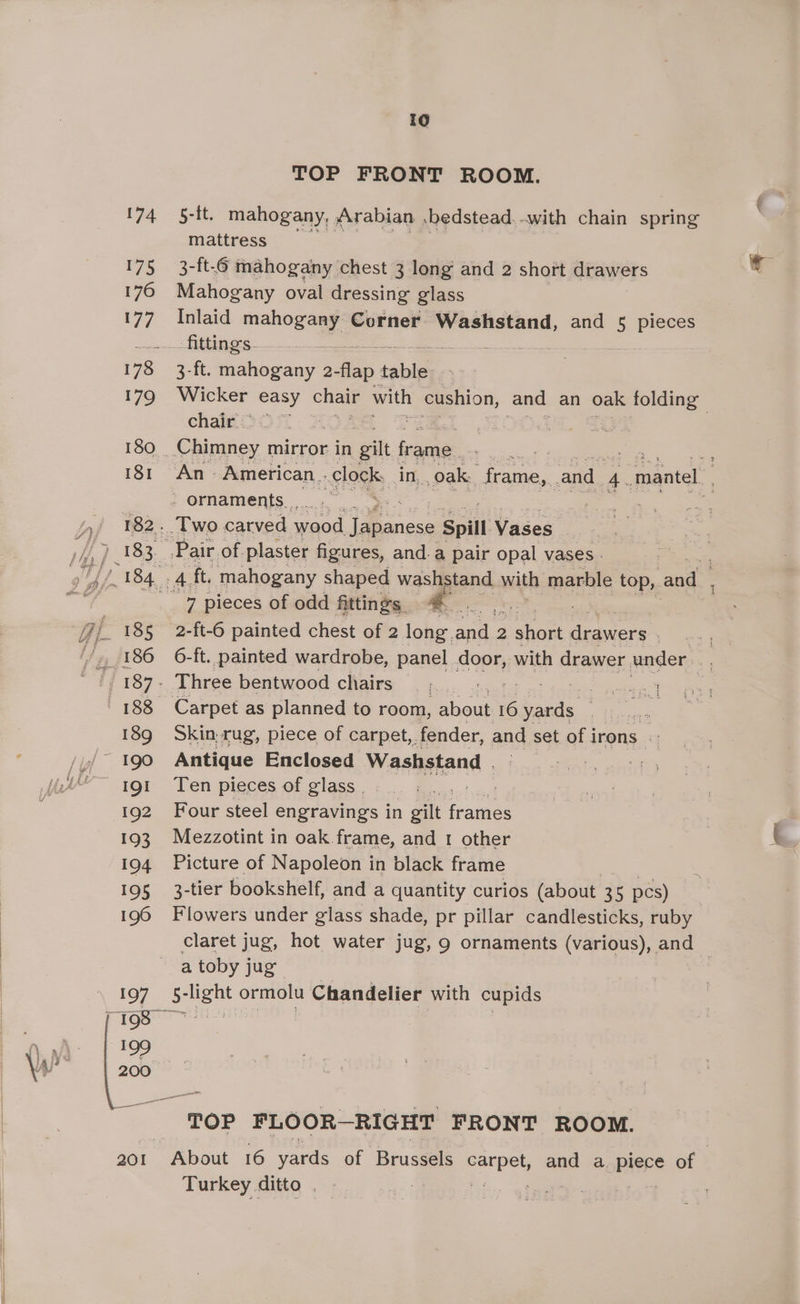 10
TOP FRONT ROOM.
174 5-ft. mahogany, Arabian bedstead with chain spring
mattress
175 3-ft-6 mahogany chest 3 long and 2 short drawers
176 Mahogany oval dressing glass
177 Inlaid mahogany Corner Washstand, and 5 pieces
fittings
178 3-ft. mahogany 2-flap table
179 Wicker easy chair with cushion, and an oak folding
chair
180 Chimney mirror in gilt frame
181 An American clock, in oak frame, and 4 mantel
ornaments
182. Two carved wood Japanese Spill Vases
183. Pair of plaster figures, and a pair opal vases
184 4 ft. mahogany shaped washstand with marble top, and
7 pieces of odd fittings
185 2-ft-6 painted chest of 2 long and 2 short drawers
186 6-ft. painted wardrobe, panel door, with drawer under
187. Three bentwood chairs
188 Carpet as planned to room, about 16 yards
189 Skin rug, piece of carpet, fender, and set of irons
190 Antique Enclosed Washstand
191 Ten pieces of glass
192 Four steel engravings in gilt frames
193 Mezzotint in oak frame, and 1 other
194 Picture of Napoleon in black frame
195 3-tier bookshelf, and a quantity curios (about 35 pcs)
196 Flowers under glass shade, pr pillar candlesticks, ruby
claret jug, hot water jug, 9 ornaments (various), and
a toby jug
197 5-light ormolu Chandelier with cupids
198
199
200
TOP FLOOR—RIGHT FRONT ROOM.
201 About 16 yards of Brussels carpet, and a piece of
Turkey ditto